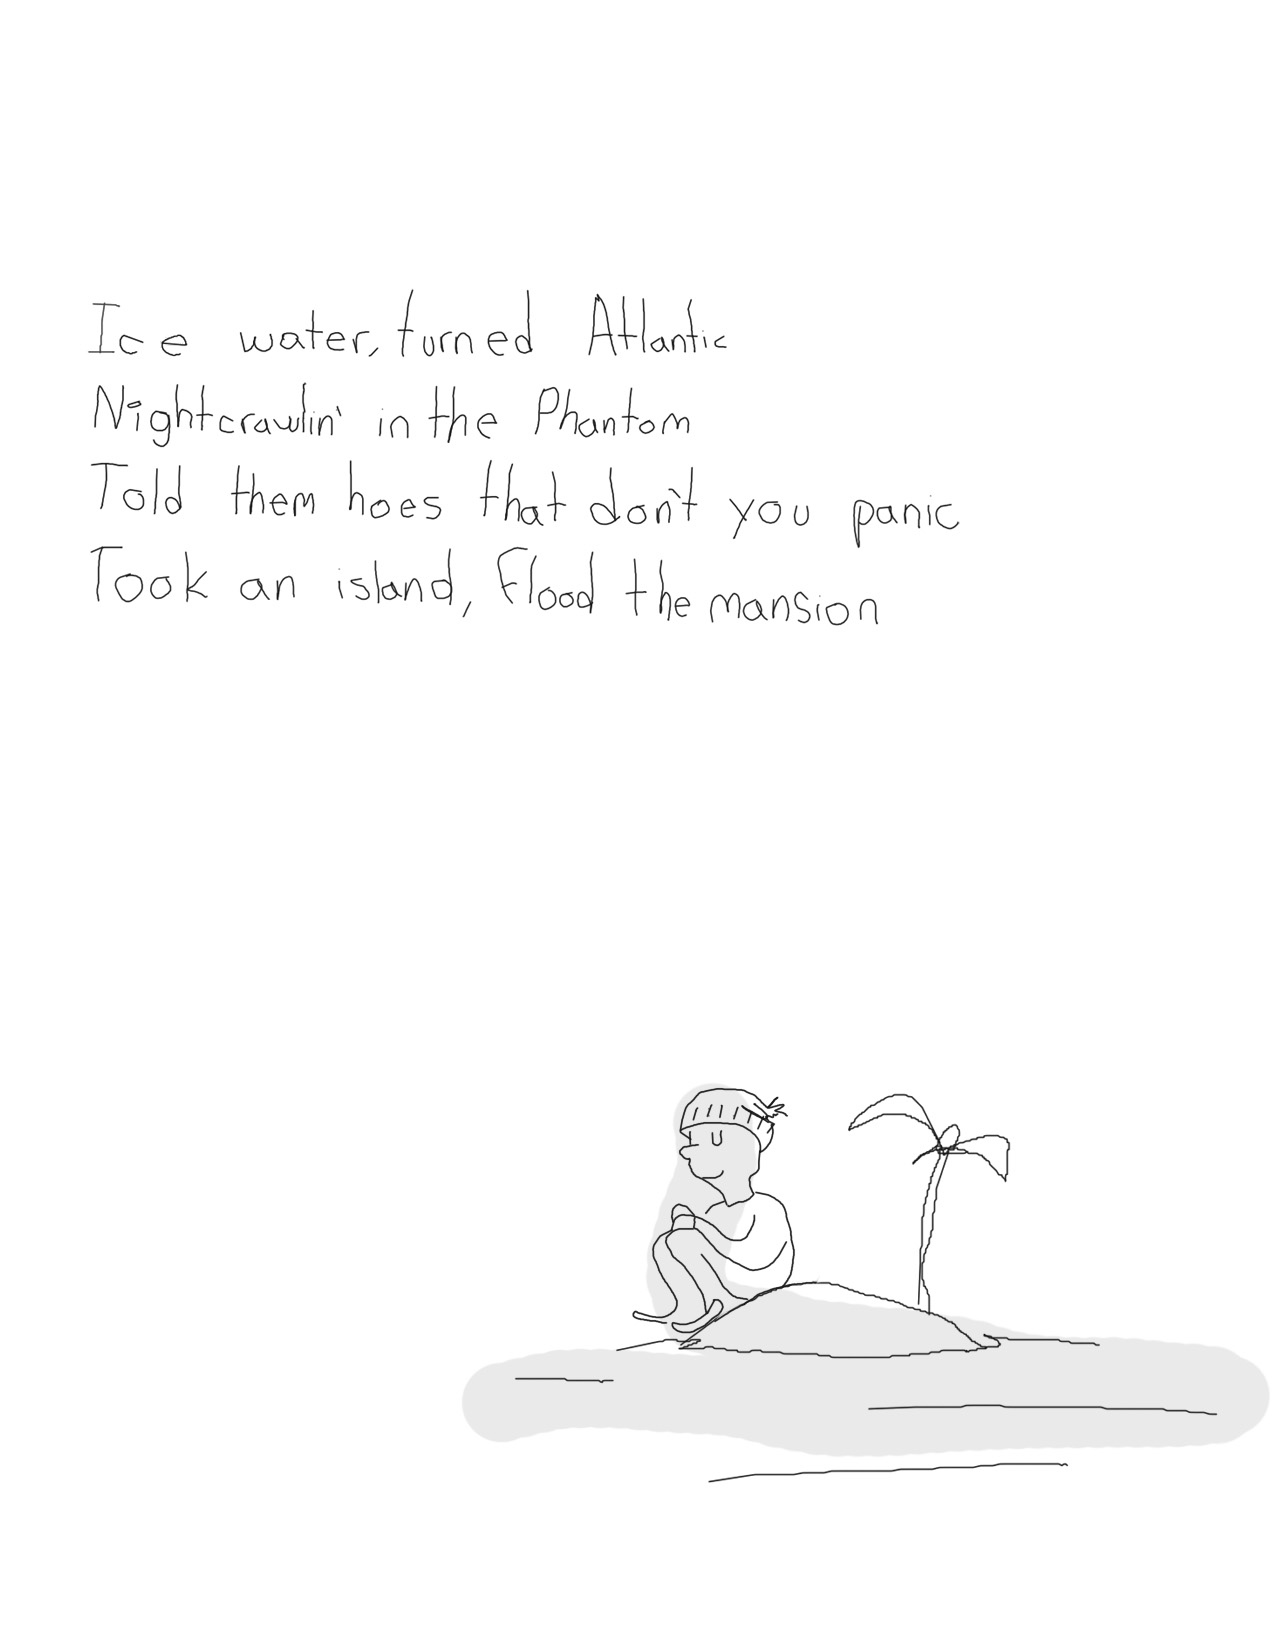 Ice water, turned Atlantic
Nightcrawlin' in the Phantom
Told them hoes that don't you panic
Took an island, flood the mansion